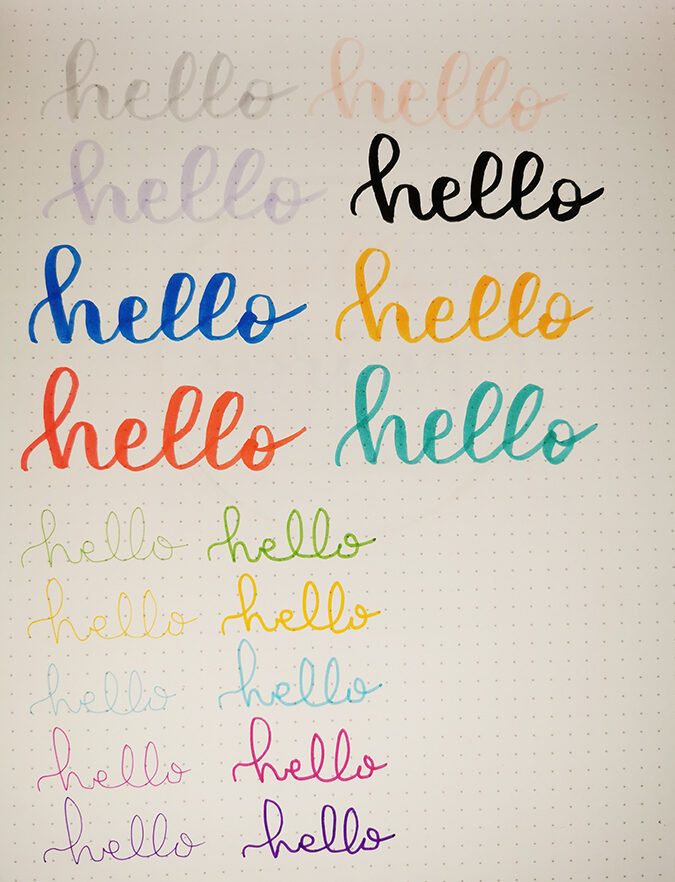 hello hello
hello hello
hello hello
hello hello
hello hello
hello hello
hello hello
hello hello
hello hello